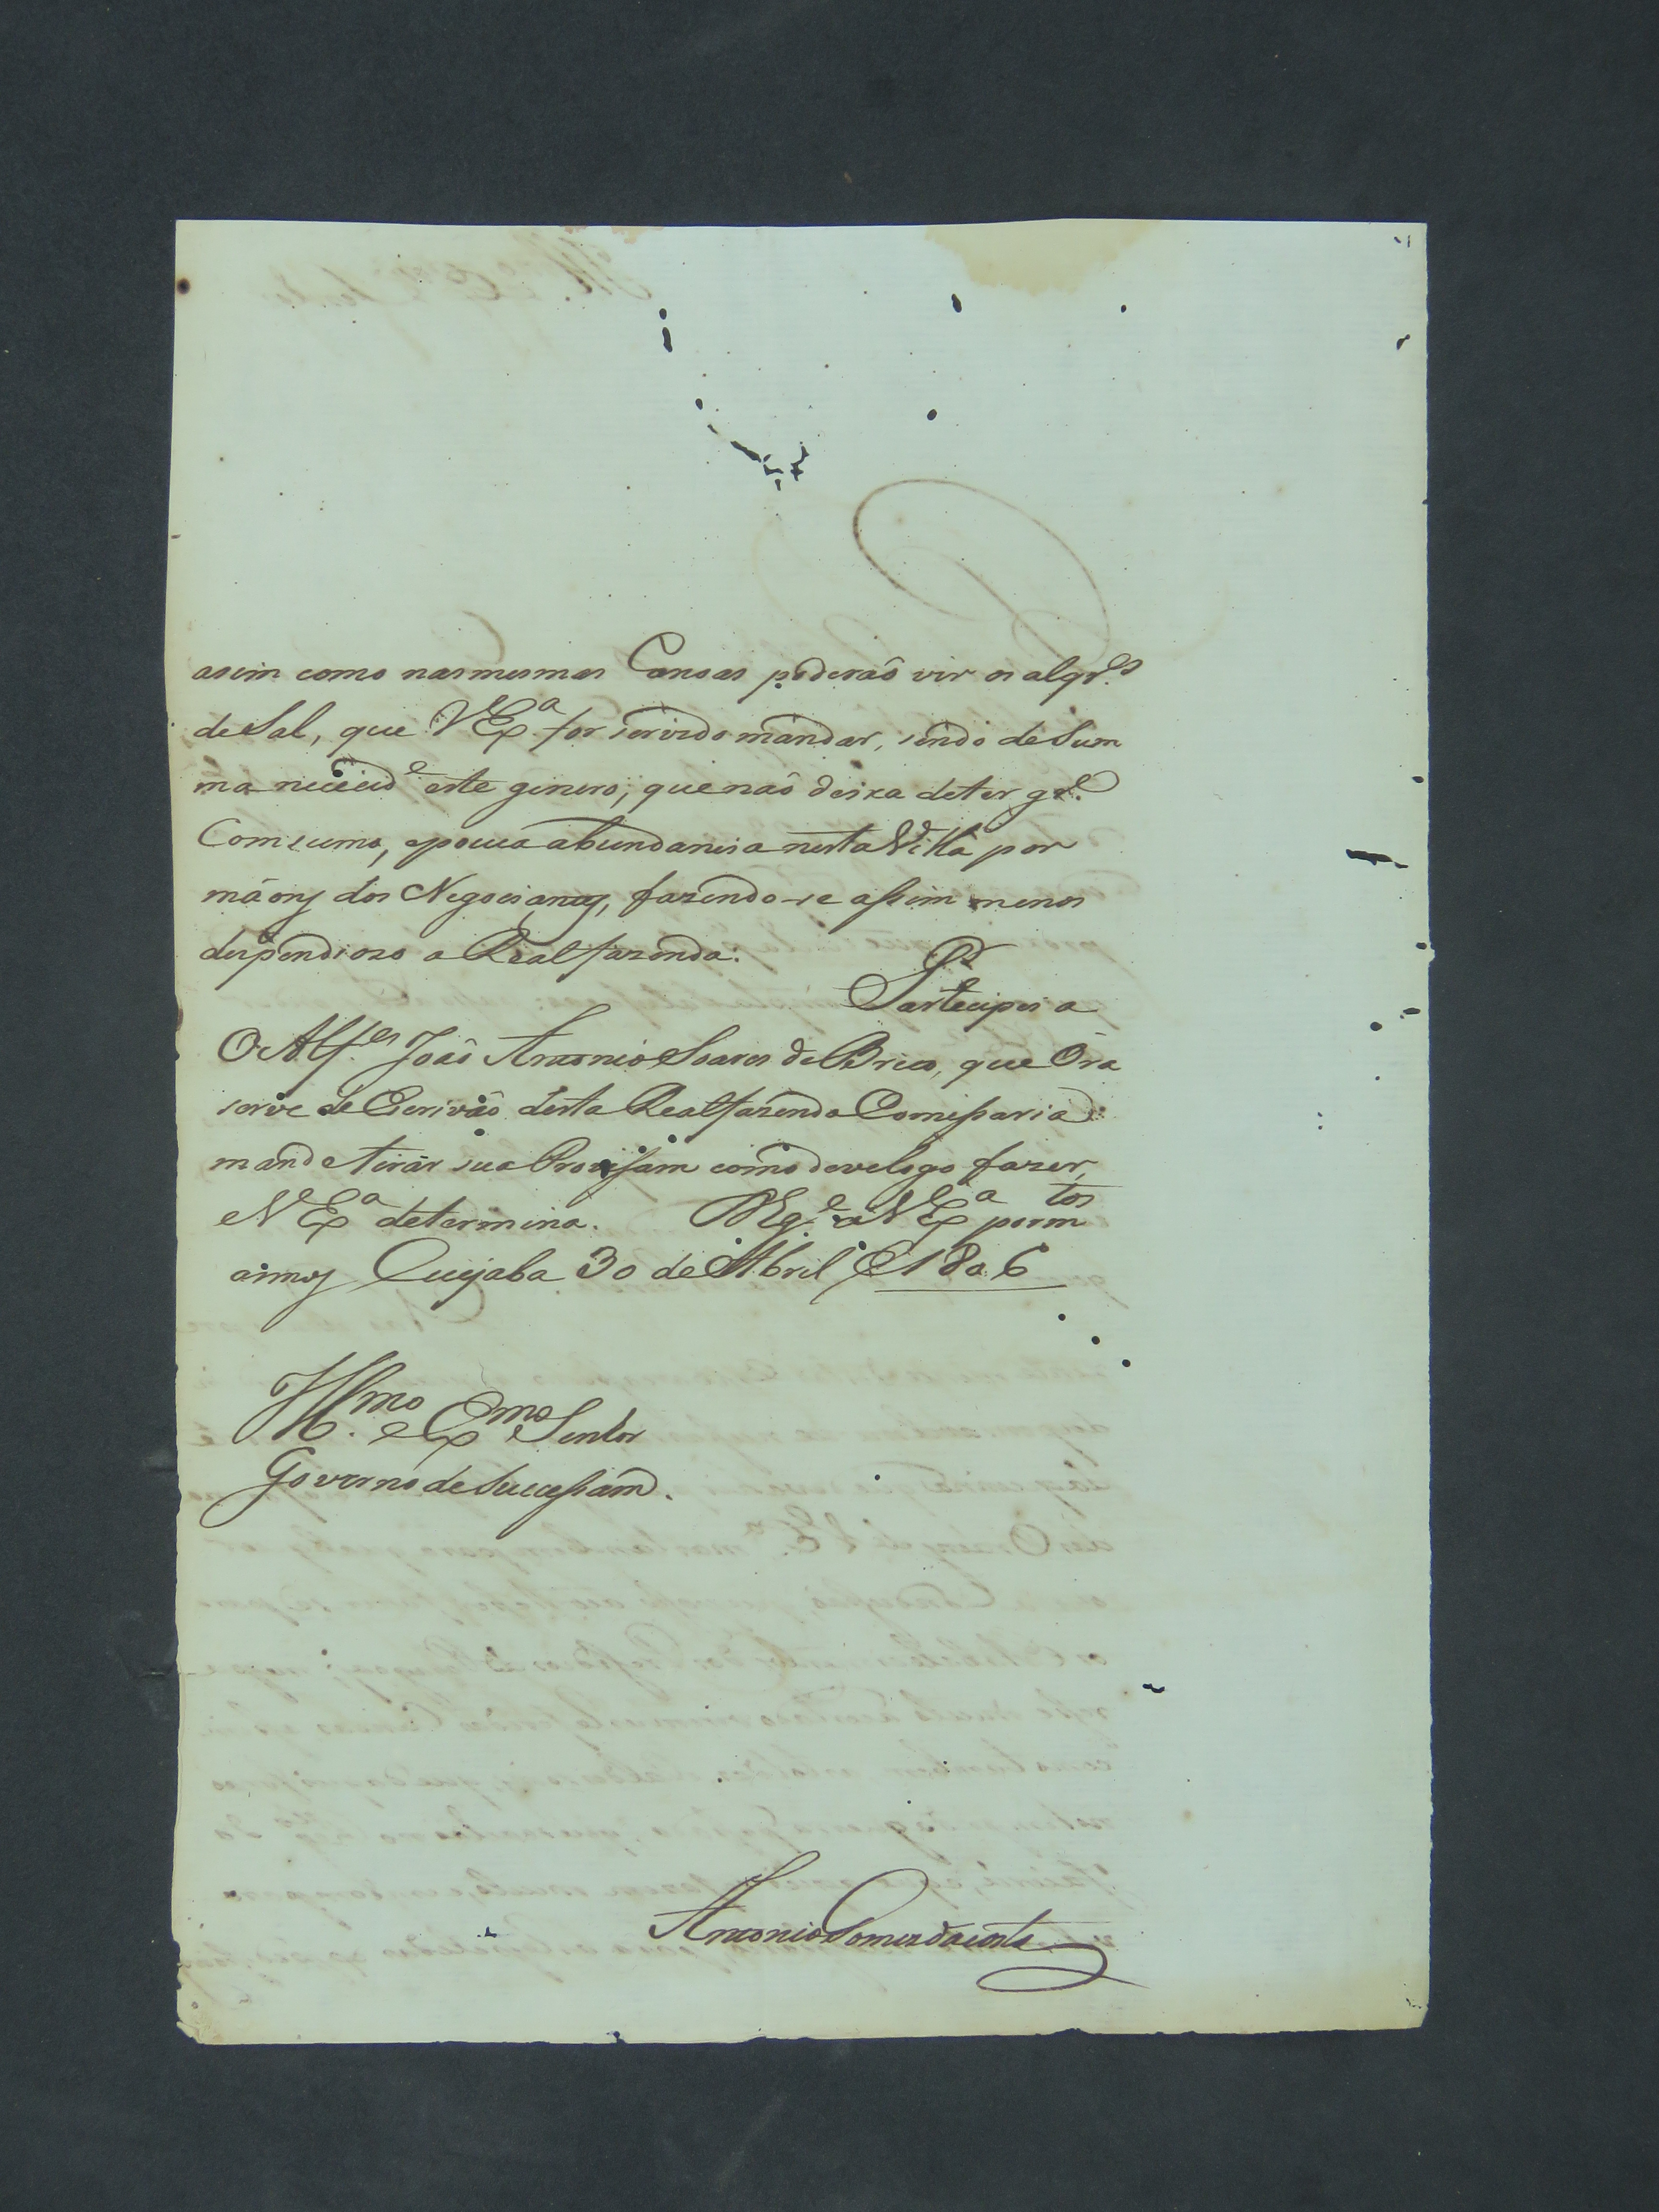 assim como nas mesmas Canoas poderaõ vir os alqr.es
de Sal, que V Ex.a for servido mandar, sendo de Sum
ma necècid.e este genero, que naõ deixa de ter gr.e
Comsumo, e pouca abundancia nesta Villa por
mãos dos Negociantes, fazendo-se assim menos
despendiozo a Real fazenda.
Partecipei a
O Alf.es Joaõ Antonio Soares de Brito, que Ora
serve de Escrivaõ desta Real fazenda Comissaria
mande tirár sua Provisam como deve logo fazer,
e V Ex.a determina. D.s g.e a V Ex.a por m.tos
annos Cuyaba 30 de Abril de 1806
Ill.mo e Ex.mo Senhor
Governo de Sucessam.
Antonio Gomes da Costa